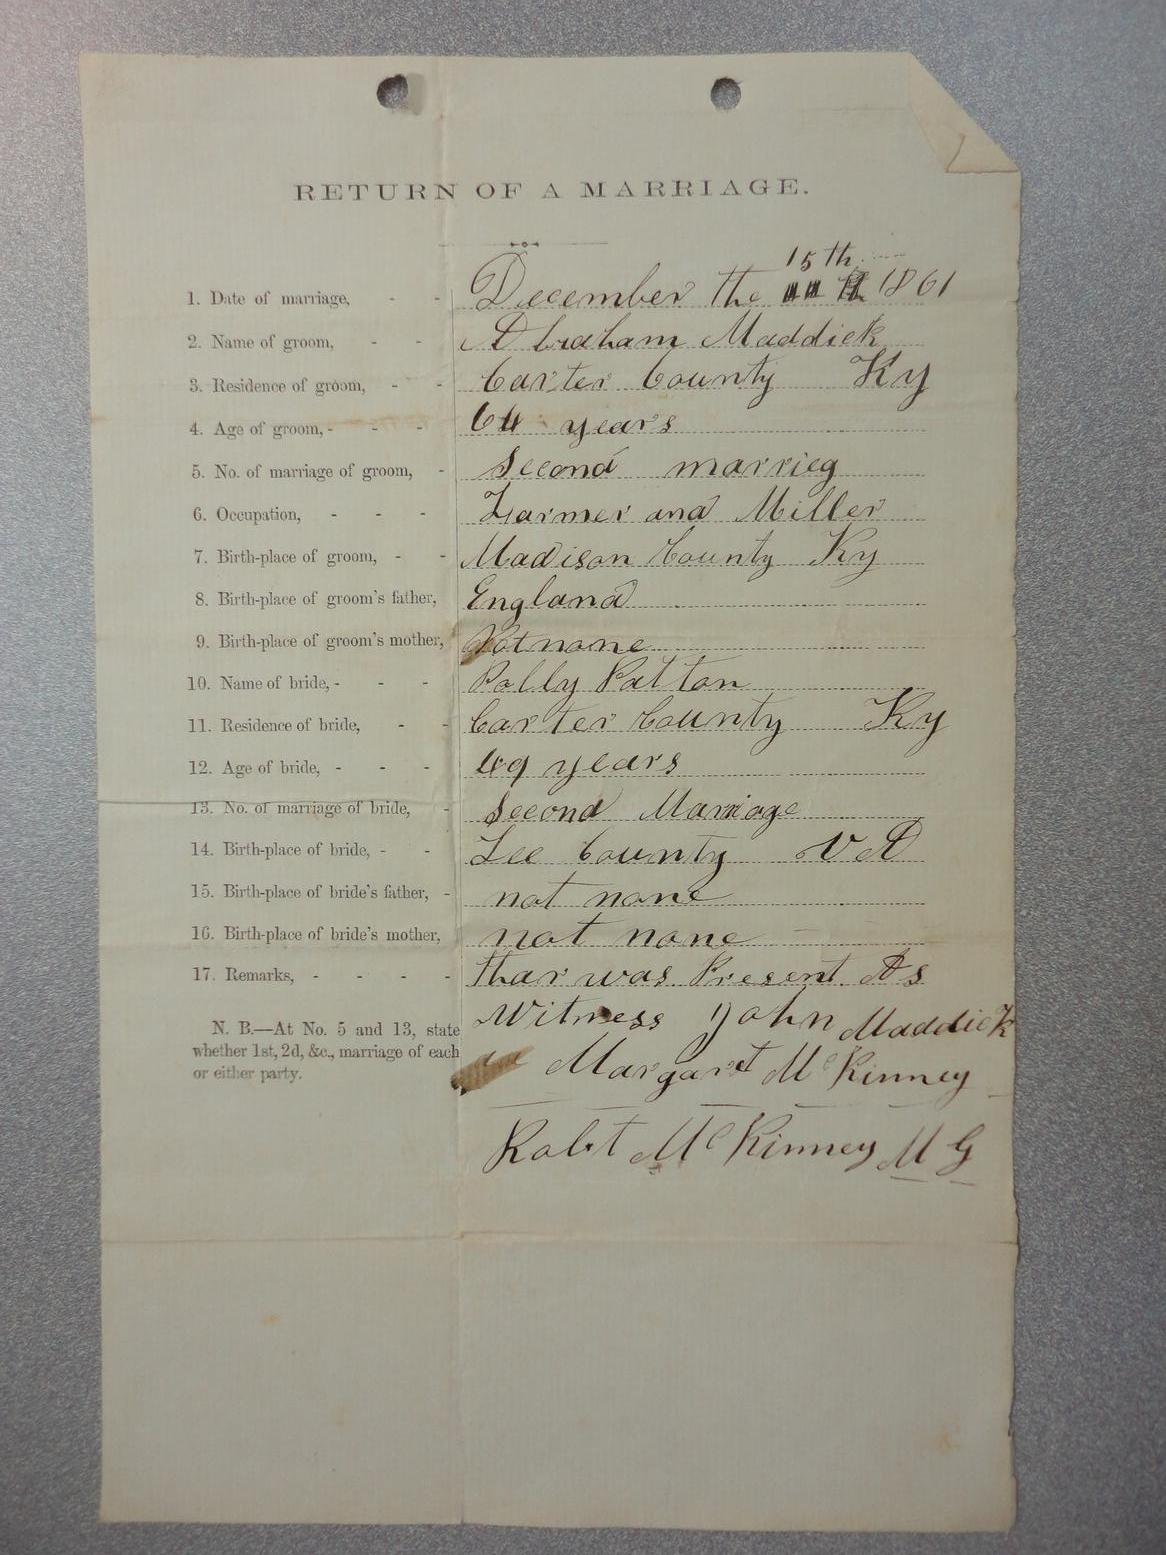 RETURN OF A MARRIAGE.
15th
1. Date of marriage, - - December the 1861
2. Name of groom, - - Abraham Maddick
3. Residence of groom, - - Carter County Ky
4. Age of groom, - - - 64 years
5. No. of marriage of groom, - Second marrieg
6. Occupation, - - - Farmer and Miller
7. Birth-place of groom, - - Madison County Ky
8. Birth-place of groom's father, England
9. Birth-place of groom's mother, Not none
10. Name of bride, - - - Polly Patton
11. Residence of bride, - - Carter County Ky
12. Age of bride, - - - 49 years
13. No. of marriage of bride, - Second Marriage
14. Birth-place of bride, - - Lee County VA
15. Birth-place of bride's father, - not none
16. Birth-place of bride's mother, not none
17. Remarks, - - - - thar was Present As
Witness John Maddick
N. B.—At No. 5 and 13, state
whether 1st, 2d, &c., marriage of each
or either party.
Margaret McKinney
Robt McKinney M G